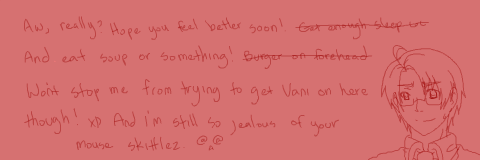 Aw, really? Hope you feel better soon! Get enough sleep lol
And eat soup or something! Burger on forehead
Won't stop me from trying to get Vani on here
though! xD And i'm still so jealous of your
mouse skittlez @.@